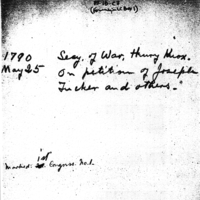 1790
May 25
Secy. of War, Henry Knox.
On petition of Joseph
Tucker and others."
Marked: 1st Congress. No. 1.